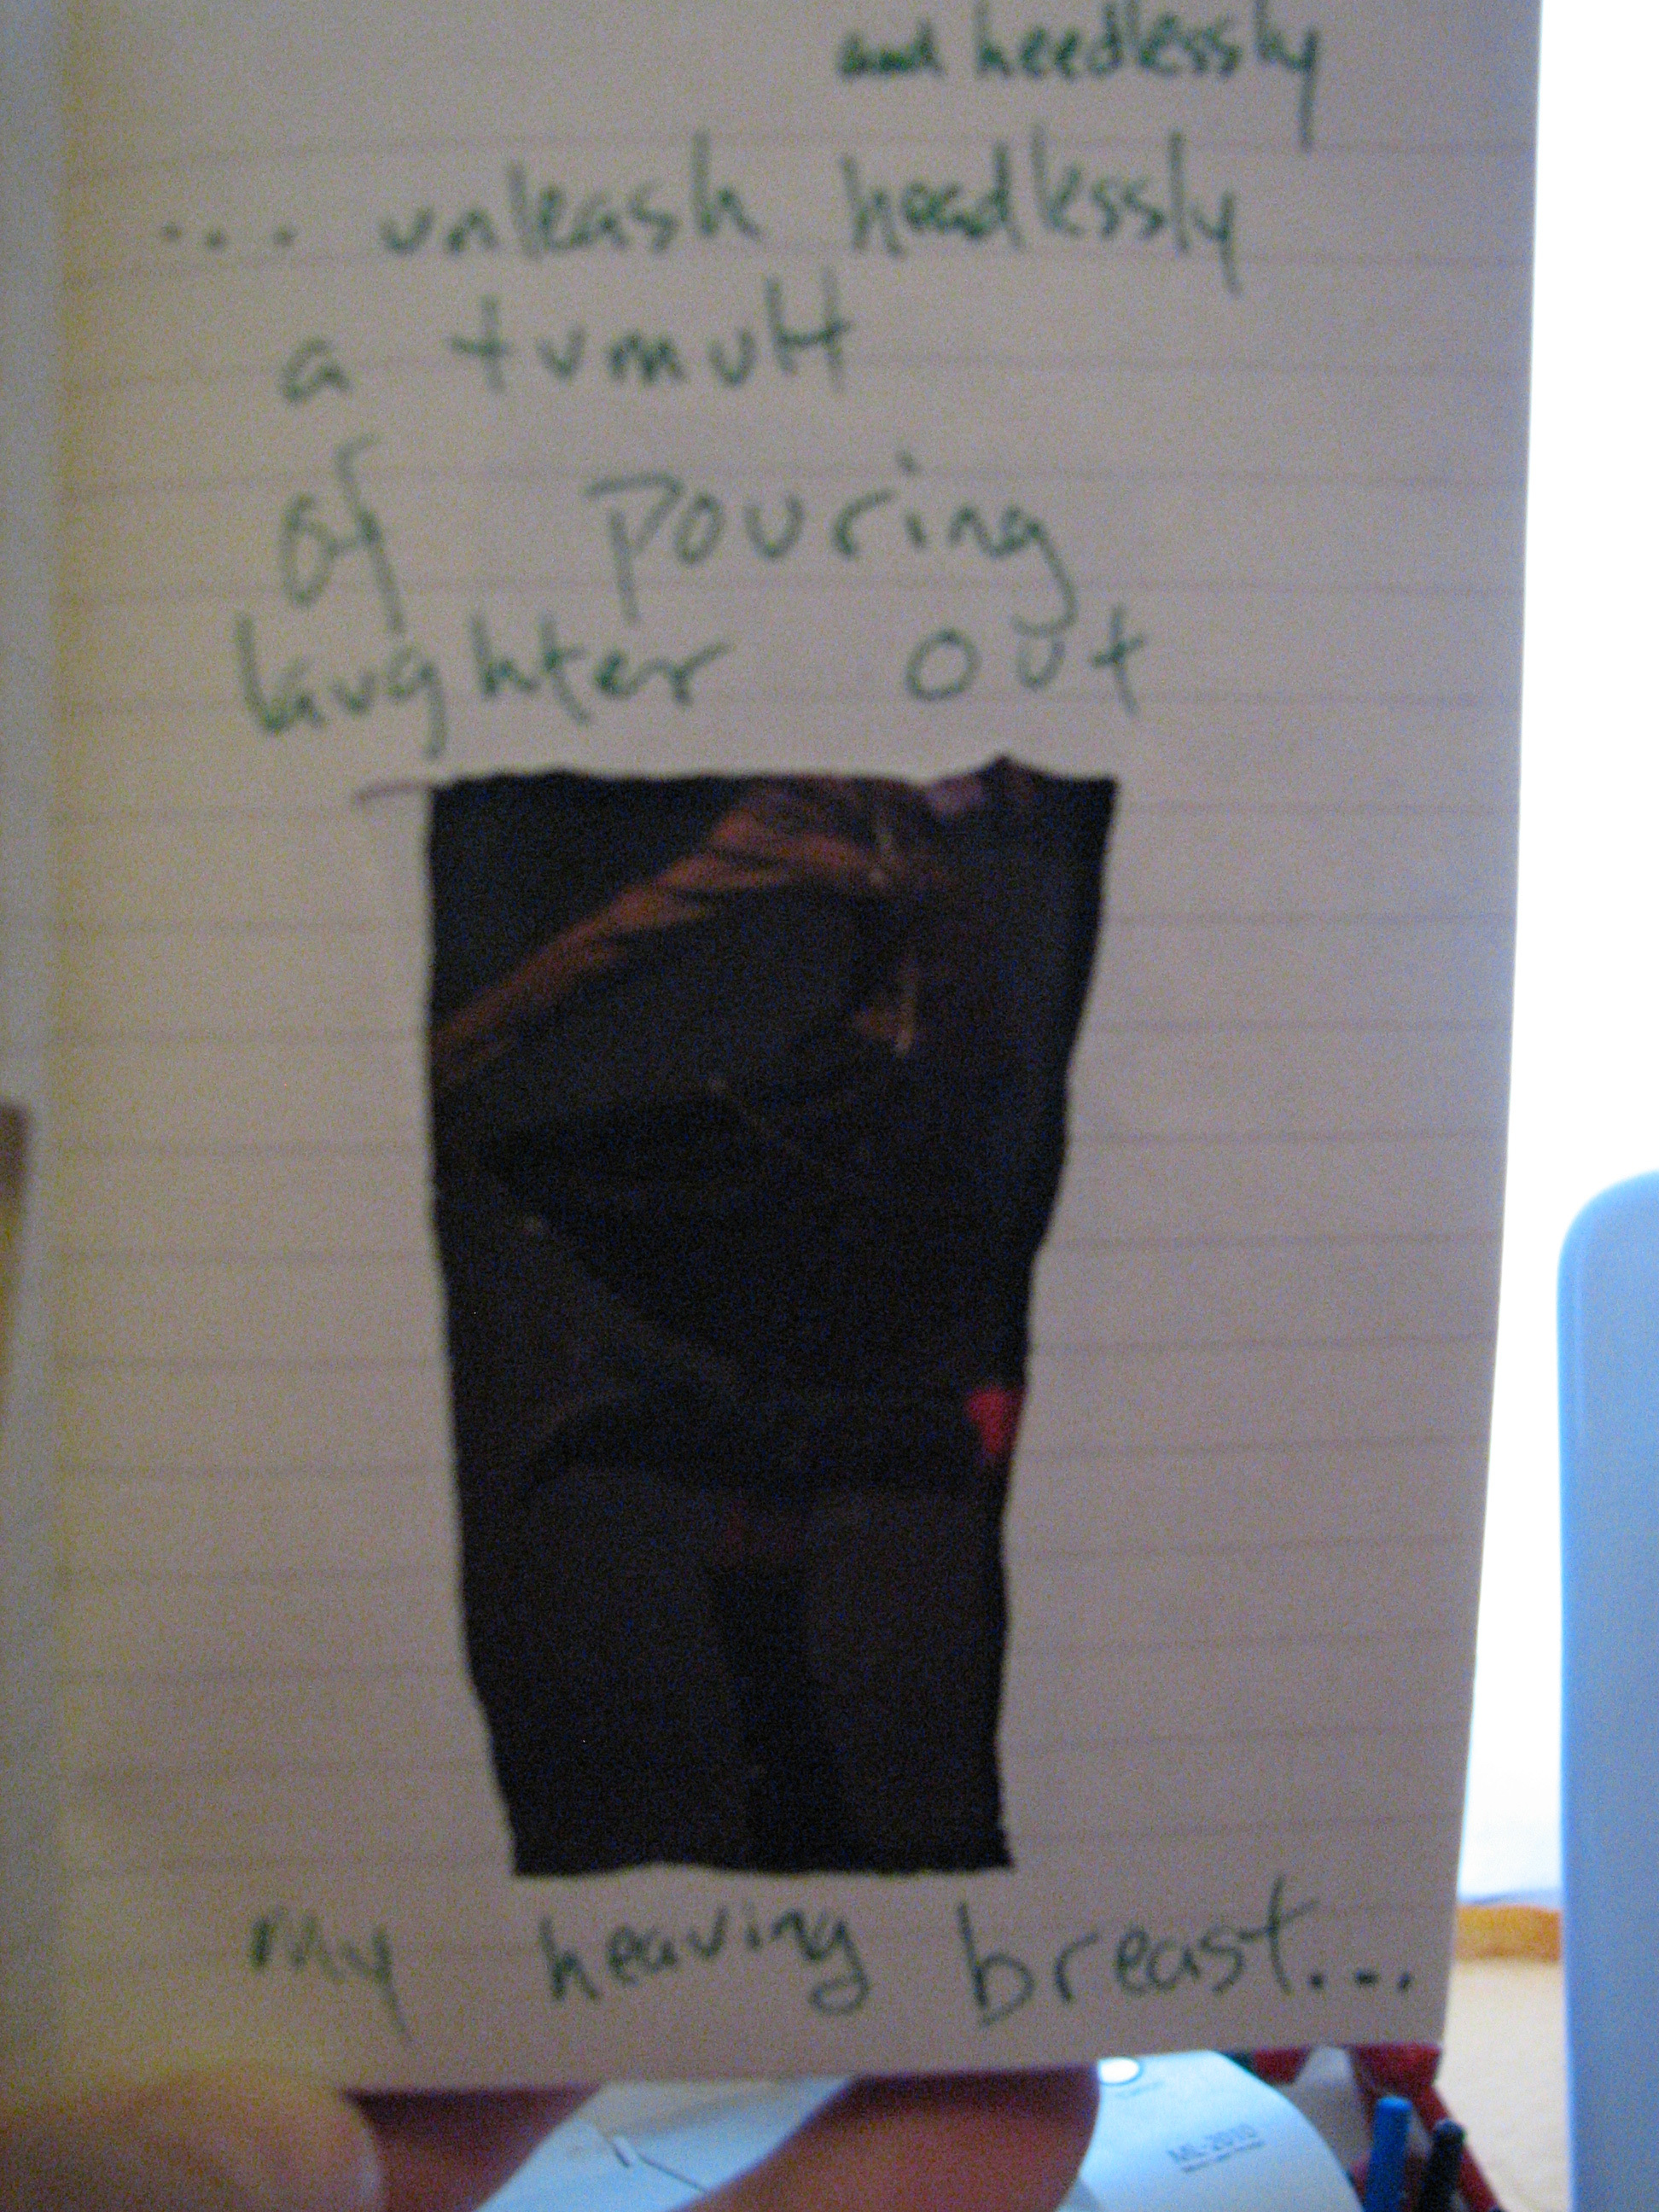 and heedlessly
... unleash headlessly
a tumult
of pouring
laughter out
my heaving breast...
ML-2010